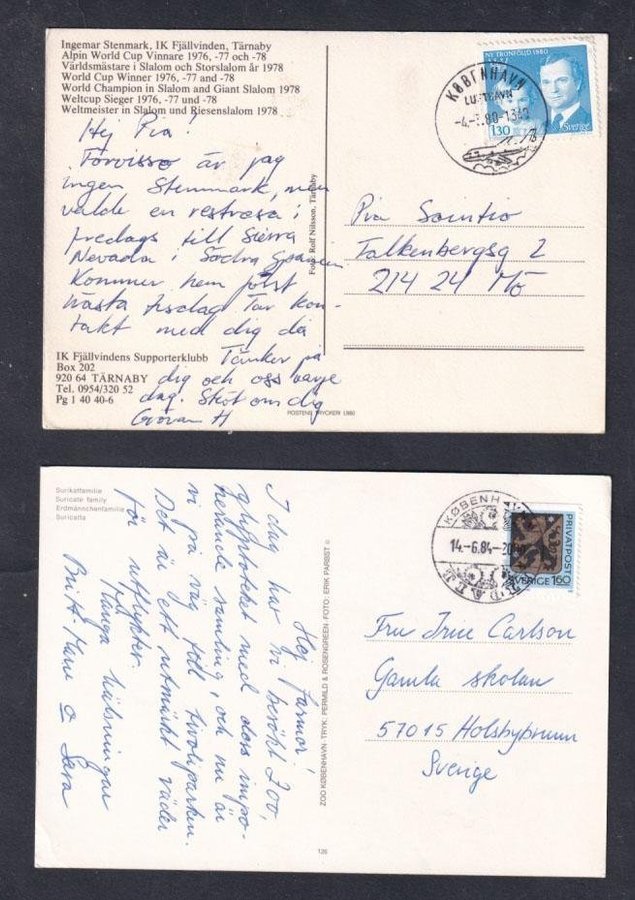 Ingemar Stenmark, IK Fjällvinden, Tärnaby
Alpin World Cup Vinnare 1976, -77 och -78
Världsmästare i Slalom och Storslalom år 1978
World Cup Winner 1976, -77 and -78
World Champion in Slalom and Giant Slalom 1978
Weltcup Sieger 1976, -77 und -78
Weltmeister in Slalom und Riesenslalom 1978
Hej Pia!
Förvisso är jag
ingen Stenmark, men
valde en restresa i
fredags till Sierra
Nevada i Södra Spanien
Kommer hem först
nästa tisdag Tar kon-
takt med dig då
Tänker på
dig och oss varje
dag. Sköt om dig
Göran H
IK Fjällvindens Supporterklubb
Box 202
920 64 TÄRNABY
Tel. 0954/320 52
Pg 1 40 40-6
Foto: Rolf Nilsson, Tärnaby
POSTENS TRYCKERI 1980
NY TRONFÖLJD 1980
1.30
Sverige
KØBENHAVN
LUFTHAVN
80-13
Pia
Falkenbergsg 2
214 24 Mö
Surikatfamilie
Suricate family
Erdmännchenfamilie
Suricatta
Hej farmor!
I dag har vi besökt Zoo,
glyptoteket med dess impo-
nerande samling, och nu är
vi på väg till tivoliparken.
Det är ett utmärkt väder
för utflykter.
Många hälsningar
Britt-Marie o Sara
ZOO KØBENHAVN · TRYK: PERMILD & ROSENGREEN · FOTO: ERIK PARBST ©
126
KØBENHAVN
14.-6.84-20
PRIVATPOST
SVERIGE 160
Fru Irene Carlson
Gamla skolan
57015 Holsbybrunn
Sverige